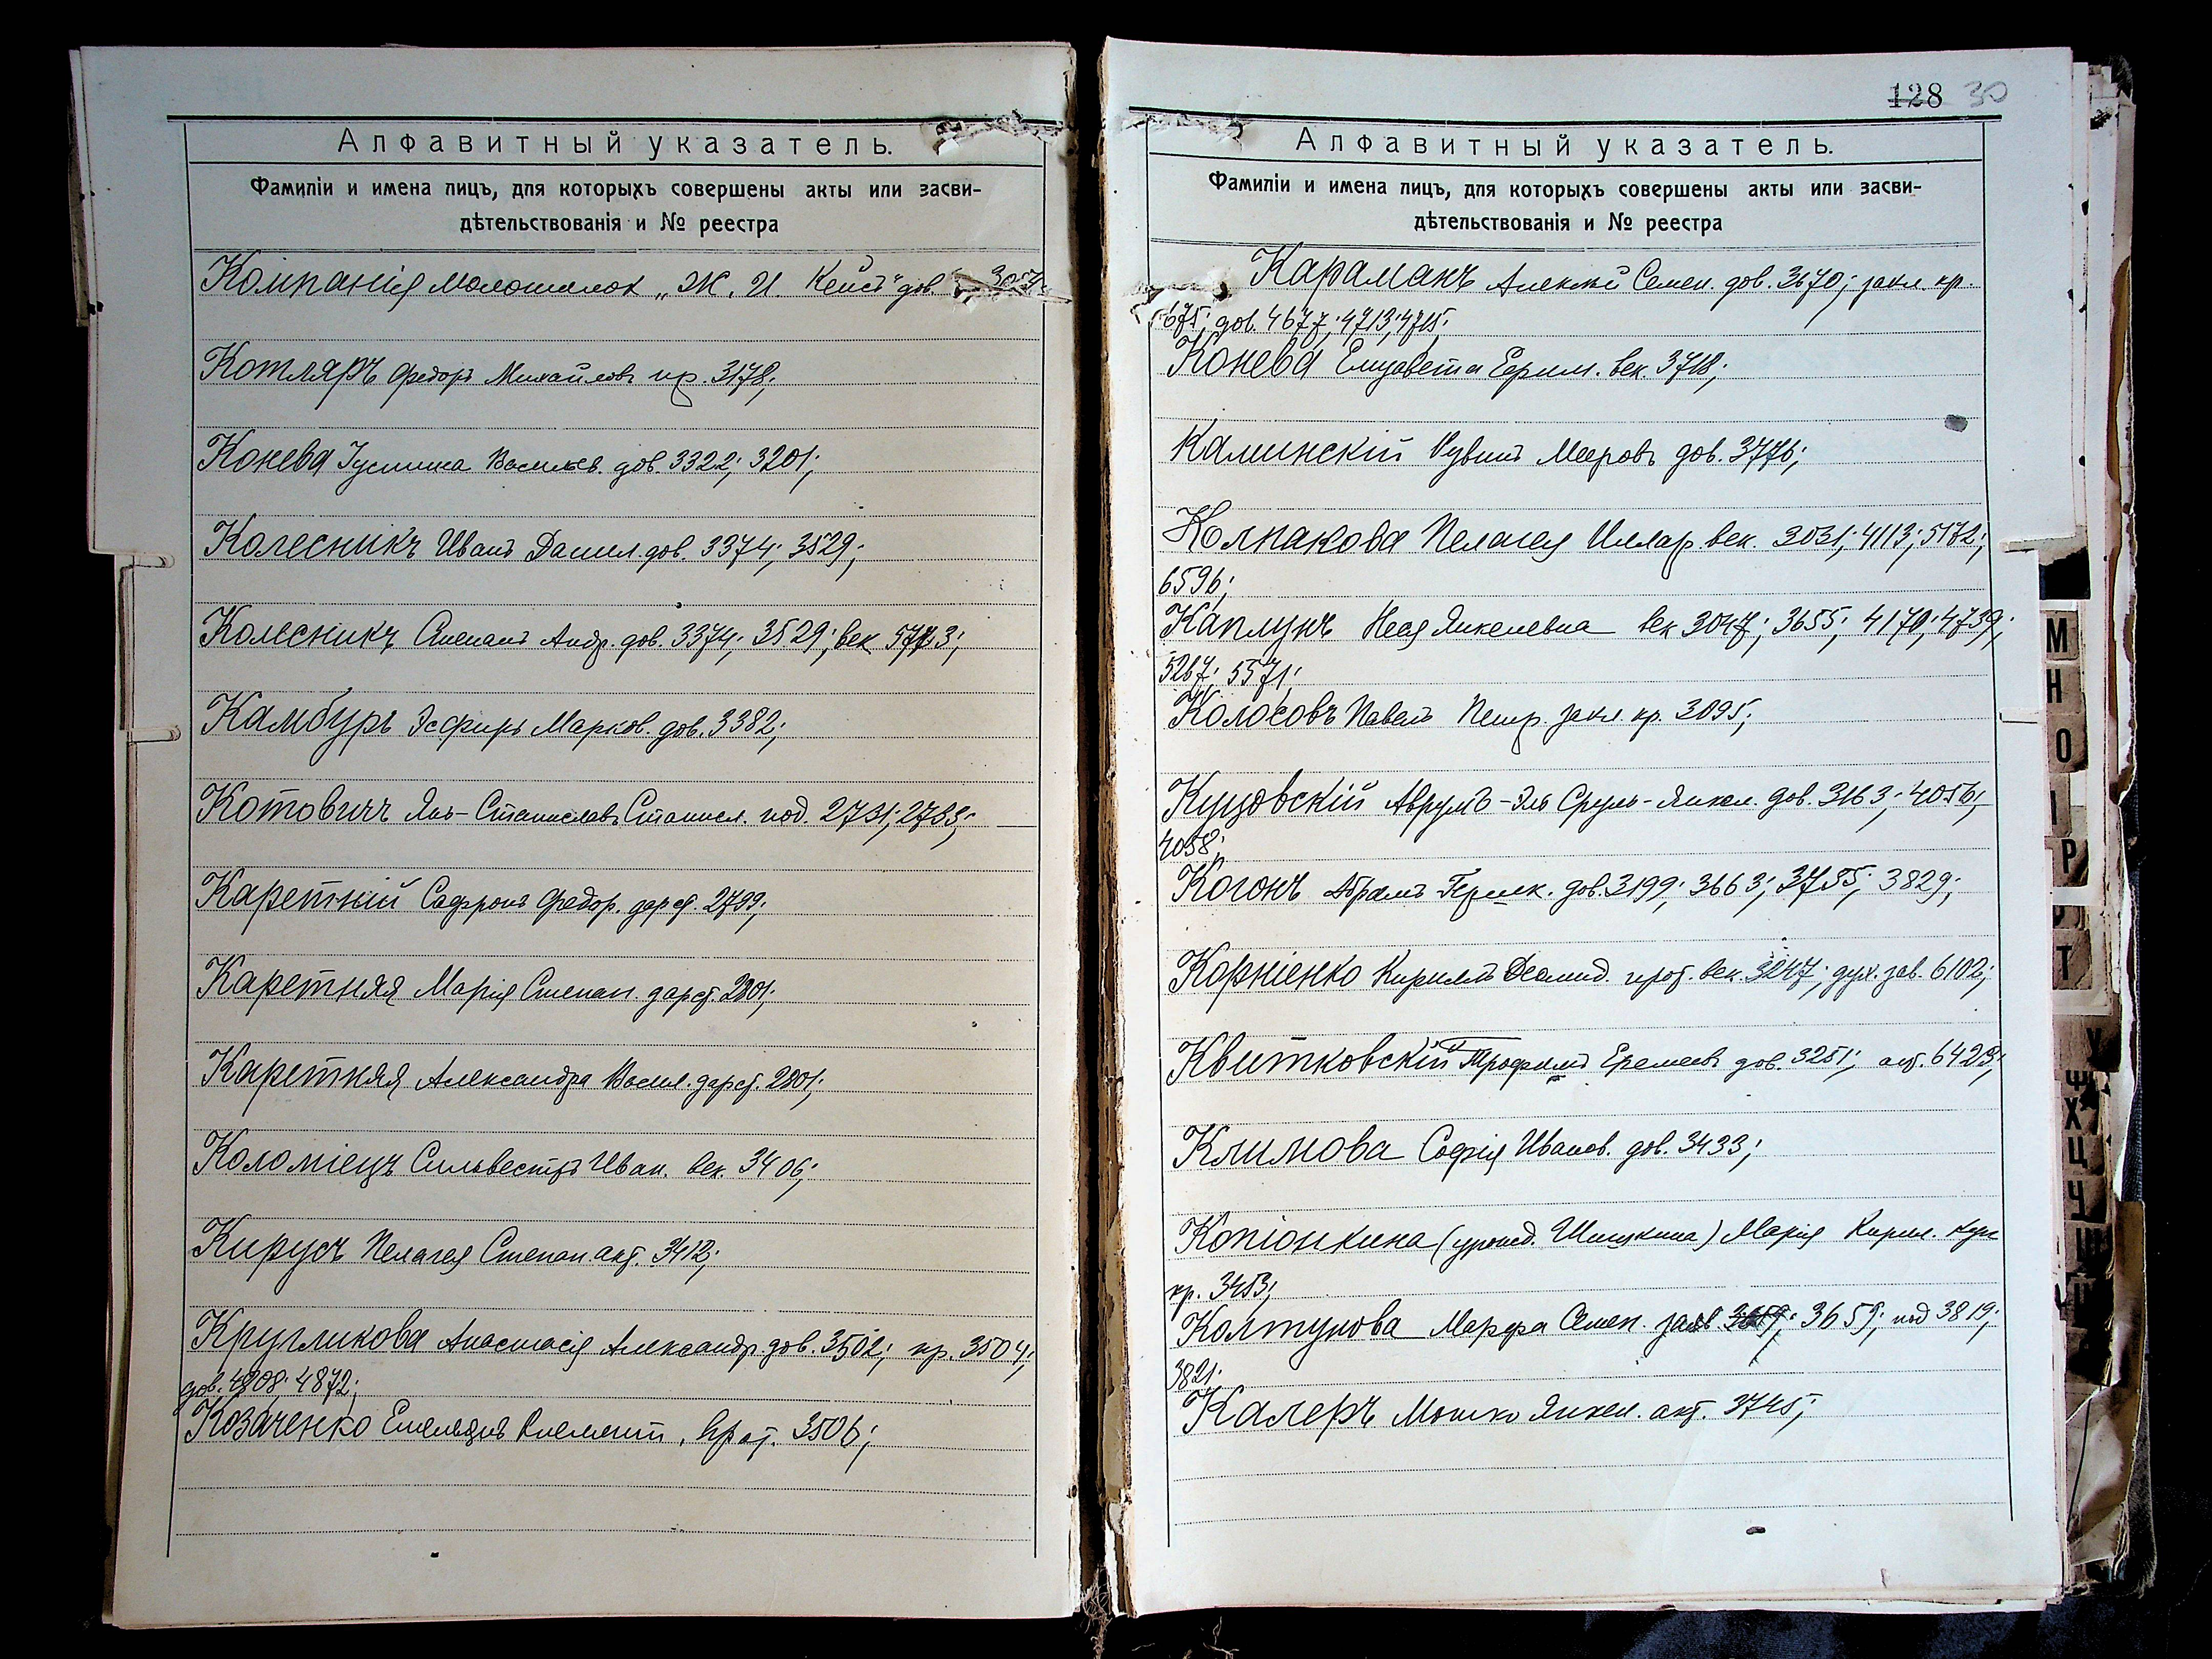 Алфавитный указатель.
Фамиліи и имена лицъ, для которыхъ совершены акты или засви-
дѣтельствованія и № реестра
Компанія Молотилок „Ж. И. Кейсъ" дов.
Котляръ Федоръ Михайловъ пр. 3178;
Конева Іустина Васильев. дов. 3322; 3201;
Колесникъ Иванъ Данил. дов. 3374; 3529;
Колесникъ Степанъ Андр. дов. 3374; 3529; век 5773;
Камбуръ Эсфирь Марков. дов. 3382;
Котовичъ Янъ-Станиславъ Станисл. под. 2731; 2733;
Каретній Сафронъ Федор. дарст. 2799;
Каретняя Марія Степан. дарст. 2801;
Каретняя Александра Васил. дарст. 2801;
Коломіецъ Сильвестръ Иван. век. 3406;
Кирусъ Пелагея Степан. акт. 3412;
Кругликова Анастасія Александр. дов. 3502; пр. 3504;
дов. 4208; 4872;
Козаченко Емельянъ Климент. прот. 3506;
128 30
Алфавитный указатель.
Фамиліи и имена лицъ, для которыхъ совершены акты или засви-
дѣтельствованія и № реестра
Караманъ Алексѣй Семен. дов. 3670; закл. кр.
675; дов. 4677; 4713; 4715;
Конева Елизавета Ефим. век. 3718;
Калинскій Рувинъ Мееровъ дов. 3776;
Колпакова Пелагея Иллар. век. 3031; 4113; 5172;
6596;
Каплунъ Неся Янкелевна век 3047; 3655; 4170; 4739;
5267; 5571;
Колосовъ Павелъ Петр. закл. кр. 3095;
Куцовскій Аврумъ-Эль Сруль-Янкел. дов. 3163; 4056;
4058;
Когонъ Абрамъ Гершк. дов. 3199; 3663; 3755; 3829;
Корніенко Кириллъ прот. век. 3247; дух. зав. 6102;
Квитковскій Трофимъ Еремеевъ дов. 3251; акт. 6423;
Климова Софія Иванов. дов. 3433;
Копіонкина (урожд. Шишкина) Марія Кирил. куп
кр. 3453;
Колтунова Марфа Семен. заяв. 3659; под 3819;
3821;
Калеръ Мошко Янкел. акт. 3745;
М
Н
О
І
Р
Т
У
Ф
Х
Ц
Ч
Ш